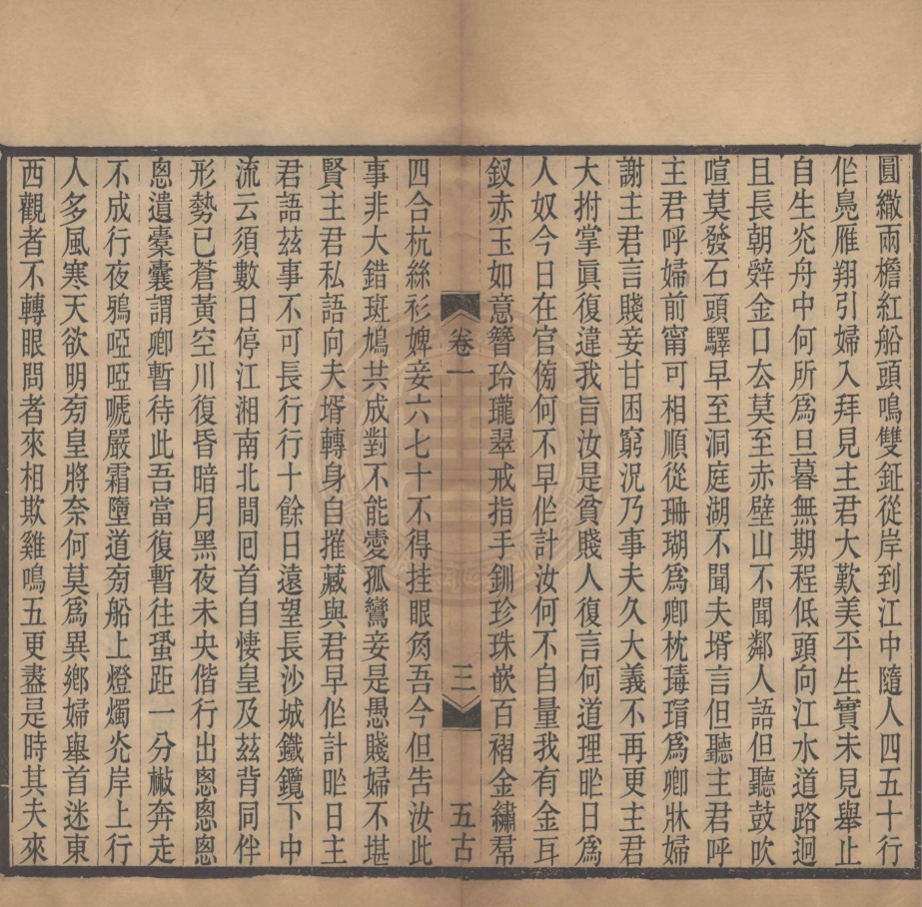 圓繖兩檐紅船頭鳴雙鉦從岸到江中隨人四五十行
作鳧雁翔引婦入拜見主君大歎美平生實未見舉止
自生光舟中何所爲旦暮無期程低頭向江水道路迥
且長朝辤金口去莫至赤壁山不聞鄰人語但聽鼓吹
喧莫發石頭驛早至洞庭湖不聞夫壻言但聽主君呼
主君呼婦前甯可相順從珊瑚爲卿枕瑇瑁爲卿牀婦
謝主君言賤妾甘困窮況乃事夫久大義不再更主君
大拊掌眞復違我旨汝是貧賤人復言何道理昨日爲
人奴今日在官傍何不早作計汝何不自量我有金耳
釵赤玉如意簪玲瓏翠戒指手釧珍珠嵌百褶金繡帬
卷一
三
五古
四合杭絲衫婢妾六七十不得挂眼角吾今但告汝此
事非大錯斑鳩共成對不能愛孤鸞妾是愚賤婦不堪
賢主君私語向夫壻轉身自摧藏與君早作計昨日主
君語茲事不可長行行十餘日遠望長沙城鐵鑵下中
流云須數日停江湘南北間回首自悽皇及茲背同伴
形勢已蒼黃空川復昏暗月黑夜未央偕行出悤悤悤
悤遺橐囊謂卿暫待此吾當復暫往蛩距一分樾奔走
不成行夜鴉啞啞嗁嚴霜墮道旁船上燈燭光岸上行
人多風寒天欲明旁皇將奈何莫爲異鄉婦舉首迷東
西觀者不轉眼問者來相欺雞鳴五更盡是時其夫來